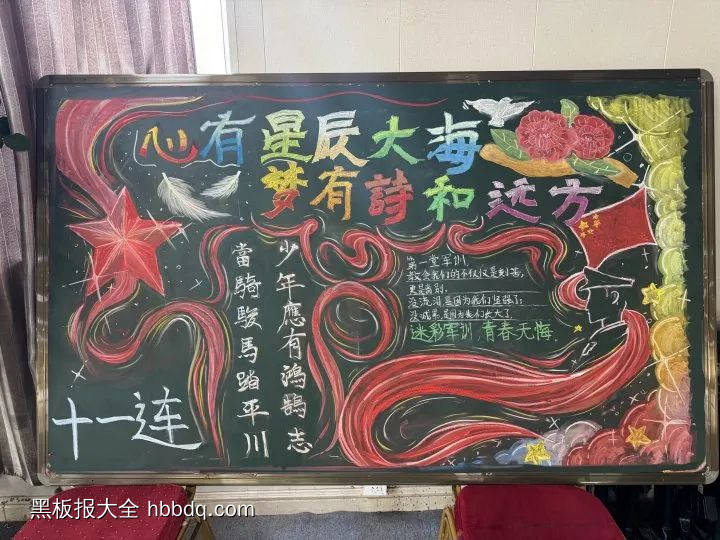 心有星辰大海
梦有詩和远方
少年應有鴻鵠志
當騎駿馬踏平川
第一堂军训
教会我们的不仅仅是刻苦，
更是离别，
没流泪是因为我们坚强了
没减息是因为我们长大了
迷彩军训 青春无悔
十一连
黑板报大全 hbbdq.com